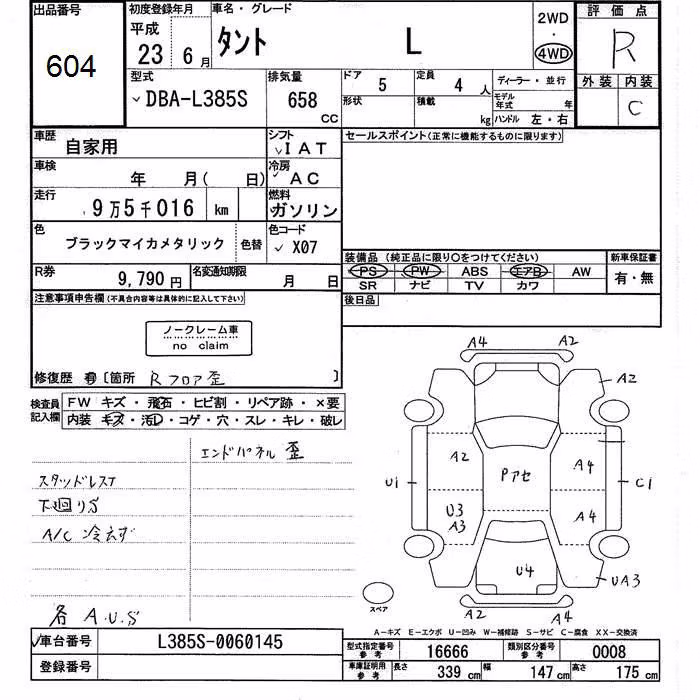 出品番号
604
初度登録年月
平成
23年 6月
車名・グレード
タント L
2WD
・
4WD
評価点
R
外装 内装
C
型式
DBA-L385S
排気量
658
CC
ドア 5
定員 4 人
ディーラー・並行
形状
積載 kg
モデル年式 年
ハンドル 左・右
車歴
自家用
シフト
I A T
セールスポイント(正常に機能するものに限ります)
車検
年 月( 日)
冷房
A C
走行
9万5千016 km
燃料
ガソリン
色
ブラックマイカメタリック
色替
色コード
X07
装備品 (純正品に限り○をつけてください)
新車保証書
PS PW ABS エアB AW
SR ナビ TV カワ
有・無
R券
9,790 円
名変通知期限
月 日
後日品
注意事項申告欄(不具合内容等は具体的に記入して下さい)
ノークレーム車
no claim
修復歴 有 〔箇所 Rフロア歪 〕
検査員記入欄
FW キズ・飛石・ヒビ割・リペア跡・×要
内装 キズ・汚れ・コゲ・穴・スレ・キレ・破レ
エンドパネル 歪
スタッドレスT
下廻りS
A/C 冷えず
各 A.U.S
A4 A2
A2
A2 A4
Pアセ
U1 C1
U3
A3
A4
U4
UA3
A2 A4
スペア
A-キズ E-エクボ U-凹み W-補修跡 S-サビ C-腐食 XX-交換済
車台番号
L385S-0060145
登録番号
型式指定番号 参考
16666
類別区分番号 参考
0008
車庫証明用 参考
長さ 339 cm
幅 147 cm
高さ 175 cm